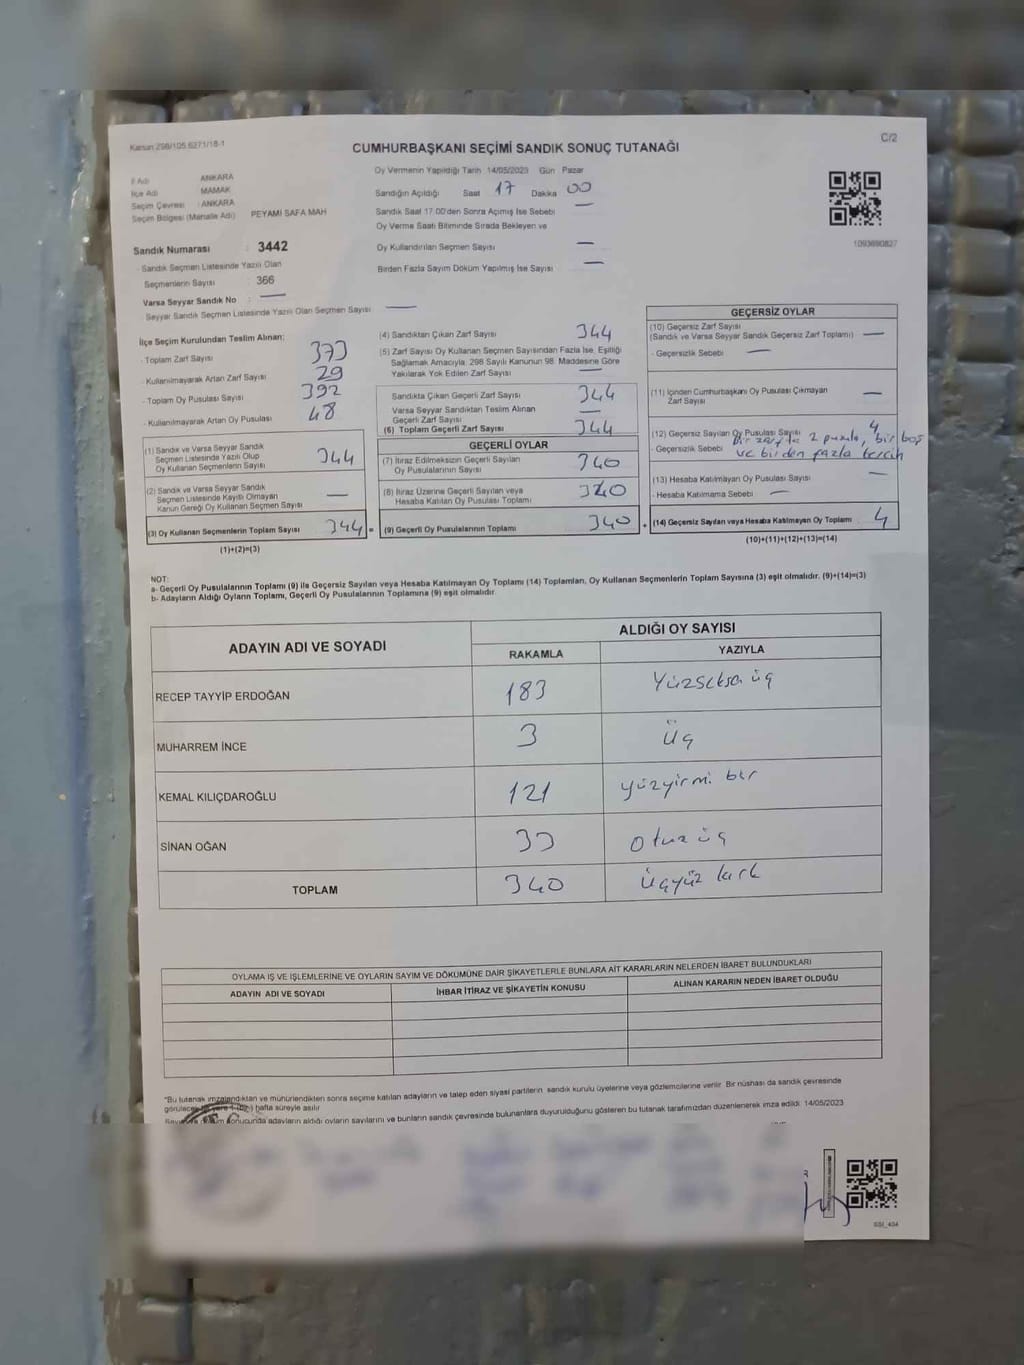 Kanun 298/105 6271/18-1
C/2
CUMHURBAŞKANI SEÇİMİ SANDIK SONUÇ TUTANAĞI
İl Adı ANKARA
İlçe Adı MAMAK
Seçim Çevresi : ANKARA
Seçim Bölgesi (Mahalle Adı) PEYAMİ SAFA MAH
Sandık Numarası : 3442
- Sandık Seçmen Listesinde Yazılı Olan
Seçmenlerin Sayısı : 366
Varsa Seyyar Sandık No : —
- Seyyar Sandık Seçmen Listesinde Yazılı Olan Seçmen Sayısı : —
Oy Vermenin Yapıldığı Tarih 14/05/2023 Gün Pazar
Sandığın Açıldığı Saat 17 Dakika 00
Sandık Saat 17 00'den Sonra Açımış İse Sebebi —
Oy Verme Saati Bitiminde Sırada Bekleyen ve
Oy Kullandırılan Seçmen Sayısı —
Birden Fazla Sayım Döküm Yapılmış İse Sayısı —
1093690827
İlçe Seçim Kurulundan Teslim Alınan;
- Toplam Zarf Sayısı 373
- Kullanılmayarak Artan Zarf Sayısı 29
- Toplam Oy Pusulası Sayısı 392
- Kullanılmayarak Artan Oy Pusulası 48
(1) Sandık ve Varsa Seyyar Sandık
Seçmen Listesinde Yazılı Olup
Oy Kullanan Seçmenlerin Sayısı 344
(2) Sandık ve Varsa Seyyar Sandık
Seçmen Listesinde Kayıtlı Olmayan
Kanun Gereği Oy Kullanan Seçmen Sayısı —
(3) Oy Kullanan Seçmenlerin Toplam Sayısı 344 =
(1)+(2)=(3)
(4) Sandıktan Çıkan Zarf Sayısı 344
(5) Zarf Sayısı Oy Kullanan Seçmen Sayısından Fazla İse, Eşitliği
Sağlamak Amacıyla, 298 Sayılı Kanunun 98. Maddesine Göre
Yakılarak Yok Edilen Zarf Sayısı —
Sandıkta Çıkan Geçerli Zarf Sayısı 344
Varsa Seyyar Sandıktan Teslim Alınan
Geçerli Zarf Sayısı —
(6) Toplam Geçerli Zarf Sayısı 344
GEÇERLİ OYLAR
(7) İtiraz Edilmeksizin Geçerli Sayılan
Oy Pusulalarının Sayısı 340
(8) İtiraz Üzerine Geçerli Sayılan veya
Hesaba Katılan Oy Pusulası Toplamı 340
(9) Geçerli Oy Pusulalarının Toplamı 340 +
GEÇERSİZ OYLAR
(10) Geçersiz Zarf Sayısı
(Sandık ve Varsa Seyyar Sandık Geçersiz Zarf Toplamı) —
- Geçersizlik Sebebi —
(11) İçinden Cumhurbaşkanı Oy Pusulası Çıkmayan
Zarf Sayısı —
(12) Geçersiz Sayılan Oy Pusulası Sayısı 4
- Geçersizlik Sebebi Bir zarfta 2 pusula, bir boş
ve birden fazla tercih
(13) Hesaba Katılmayan Oy Pusulası Sayısı —
- Hesaba Katılmama Sebebi —
(14) Geçersiz Sayılan veya Hesaba Katılmayan Oy Toplamı 4
(10)+(11)+(12)+(13)=(14)
NOT:
a- Geçerli Oy Pusulalarının Toplamı (9) ile Geçersiz Sayılan veya Hesaba Katılmayan Oy Toplamı (14) Toplamları, Oy Kullanan Seçmenlerin Toplam Sayısına (3) eşit olmalıdır. (9)+(14)=(3)
b- Adayların Aldığı Oyların Toplamı, Geçerli Oy Pusulalarının Toplamına (9) eşit olmalıdır.
ADAYIN ADI VE SOYADI
ALDIĞI OY SAYISI
RAKAMLA YAZIYLA
RECEP TAYYİP ERDOĞAN 183 Yüzseksen üç
MUHARREM İNCE 3 üç
KEMAL KILIÇDAROĞLU 121 yüzyirmi bir
SİNAN OĞAN 33 otuz üç
TOPLAM 340 üçyüz kırk
OYLAMA İŞ VE İŞLEMLERİNE VE OYLARIN SAYIM VE DÖKÜMÜNE DAİR ŞİKAYETLERLE BUNLARA AİT KARARLARIN NELERDEN İBARET BULUNDUKLARI
ADAYIN ADI VE SOYADI İHBAR İTİRAZ VE ŞİKAYETİN KONUSU ALINAN KARARIN NEDEN İBARET OLDUĞU
*Bu tutanak imzalandıktan ve mühürlendikten sonra seçime katılan adayların ve talep eden siyasi partilerin sandık kurulu üyelerine veya gözlemcilerine verilir. Bir nüshası da sandık çevresinde
görülecek bir yere 1 (bir) hafta süreyle asılır
sonucunda adayların aldığı oyların sayılarını ve bunların sandık çevresinde bulunanlara duyurulduğunu gösteren bu tutanak tarafımızdan düzenlenerek imza edildi. 14/05/2023
SSI_404